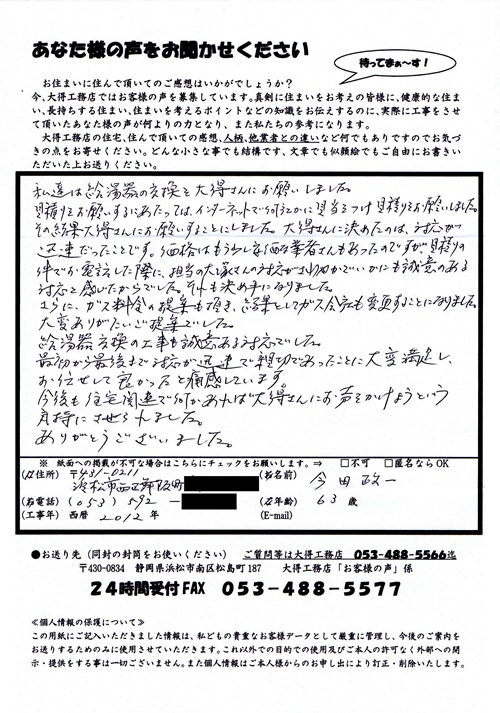 あなた様の声をお聞かせください
待ってまぁ〜す！
お住まいに住んで頂いてのご感想はいかがでしょうか？
今、大得工務店ではお客様の声を募集しています。真剣に住まいをお考えの皆様に、健康的な住ま
い、長持ちする住まい、住まいを考えるポイントなどの知識をお伝えするのに、実際に工事をさせ
て頂いたあなた様の声が何よりの力となり、また私たちの参考になります。
大得工務店の住宅、住んで頂いての感想、人柄、他業者との違いなど何でもありですのでお気づ
きの点をお寄せください。どんな小さな事でも結構です、文章でも似顔絵でもご自由にお書きい
ただいた上お送りください。
私達は給湯器の交換を大得さんにお願いしました。
見積りをお願いするにあたっては、インターネットで何件かに見当をつけ見積りをお願いしました。
その結果大得さんにお願いすることにしました。大得さんに決めたのは、対応が
迅速だったことです。価格はもう少し安い業者さんもあったのですが見積りの
件でお電話した際に、担当の大塚さんの対応がさわやかでいかにも誠意のある
対応と感じたからでした。それも決め手になりました。
さらに、ガス料金の提案も頂き、結果としてガス会社も変更することになりました。
大変ありがたいご提案でした。
給湯器交換の工事も誠意ある対応でした。
最初から最後まで対応が迅速で親切であったことに大変満足し、
お任せして良かったと痛感しています。
今後も住宅関連で何かあれば大得さんにお声をかけようという
気持にさせられました。
ありがとうございました。
※ 紙面への掲載が不可な場合はこちらにチェックをお願いします。⇒ □不可 □匿名ならOK
(ご住所) 〒431-0211
浜松市西区舞阪町
(お名前) 今田政一
(お電話) (053) 592 —
(お年齢) 63 歳
(工事年) 西暦 2012年
(E-mail)
●お送り先（同封の封筒をお使いください） ご質問等は大得工務店 053-488-5566迄
〒430-0834 静岡県浜松市南区松島町187 大得工務店「お客様の声」係
24時間受付FAX 053-488-5577
≪個人情報の保護について≫
この用紙にご記入いただきました情報は、私どもの貴重なお客様データとして厳重に管理し、今後のご案内を
お送りするためのみに使用させていただきます。これ以外での目的での使用及びご本人の許可なく外部への開
示・提供をする事は一切ございません。また個人情報はご本人様からのお申し出により訂正・削除いたします。